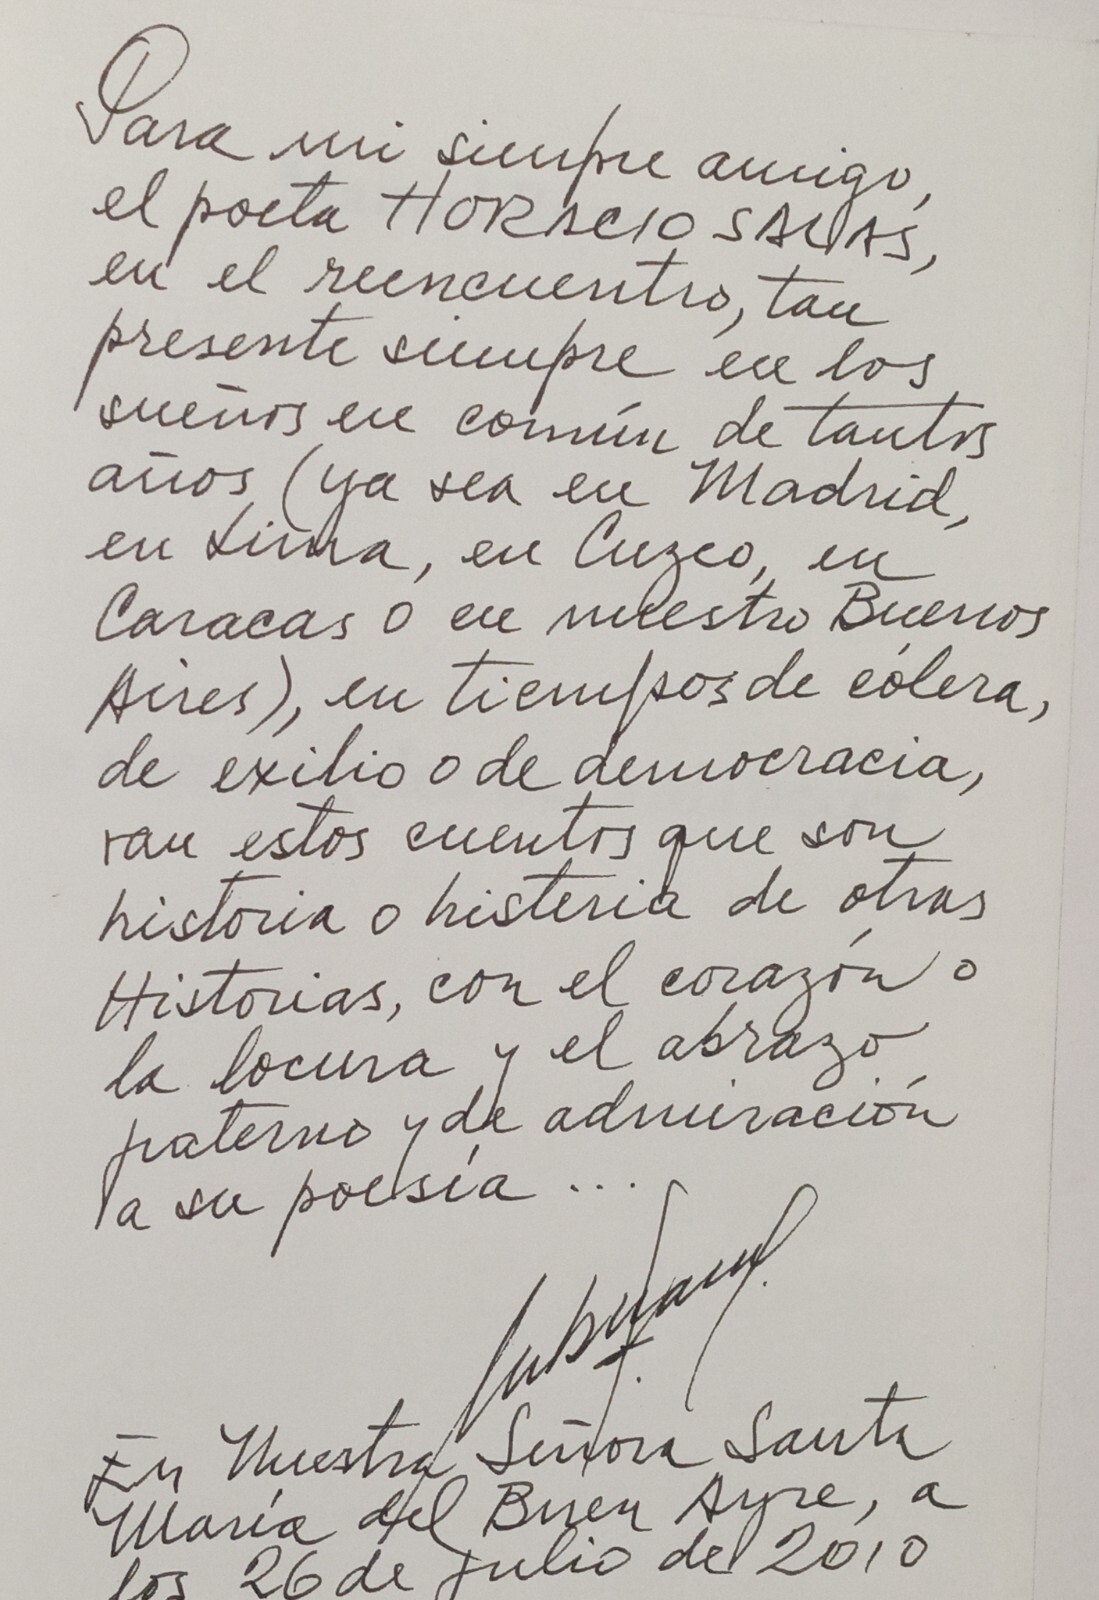 Para mi siempre amigo,
el poeta HORACIO SALAS,
en el reencuentro, tan
presente siempre en los
sueños en común de tantos
años (ya sea en Madrid,
en Lima, en Cuzco, en
Caracas o en nuestro Buenos
Aires), en tiempos de cólera,
de exilio o de democracia,
van estos cuentos que son
historia o histeria de otras
Historias, con el corazón o
la locura y el abrazo
paterno y de admiración
a su poesía ...
En Nuestra Señora Santa
María del Buen Ayre, a
los 26 de julio de 2010